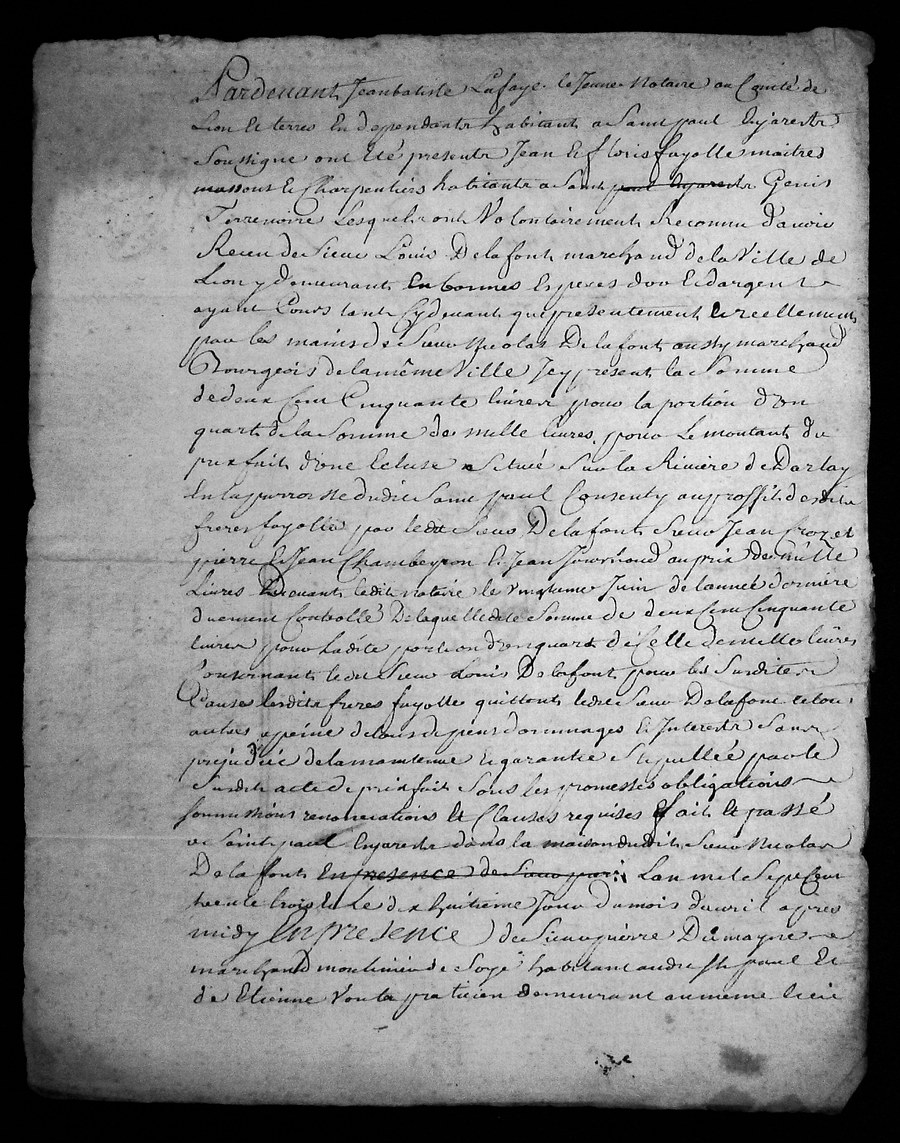 Pardevant Jeanbatiste Lafaye le Jeune Notaire au Comté de
Lion Et terres En dependants habitant a Saint paul Enjarestz
Soussigne ont Eté presents Jean & floris fayolle maitres
massons & Charpentiers habitants a Saint paul Enjarestz Genis
Terrenoire Lesquels ont Volontairement Reconnu d'avoir
Receu de Sieur Louis Delafont marchand de la Ville de
Lion y demeurant En bonnes Especes d'or & dargent
ayant Cours tant Cydevant que presentement & reellement
par les mains de Sieur Nicolas Delafont aussy marchand
Bourgeois de la même Ville Icy present la Somme
de deux Cent Cinquante livres pour la portion d'un
quart de la Somme de mille livres pour Le montant du
prixfait d'une Ecluse Située Sur la Riviere de Darlay
En la parroisse dudit Saint paul Consenty au proffit desdits
freres fayolle par ledit Sieur Delafont Sieur Jean
pierre & Jean Chambeyron & Jean au prix de mille
Livres Devant ledit notaire le vingtieme Juin de lannée derniere
duement Controllé De laquelle ditte Somme de deux Cent Cinquante
livres pour ladite portion d'un quart d'iCelle de mille livres
Concernant ledit Sieur Louis Delafont pour les Susdites
Causes lesdits freres fayolle quittent ledit Sieur Delafont & tous
autres a peine de tous depens dommages & Interests Sans
prejudice de la maintenue & garantie Stipullée par le
Susdit acte de prixfait Sous les promesses obligations
soumissions renonciations Et Clauses requises fait Et passé
a Saint paul Enjarestz dans la maison dudit Sieur Nicolas
Delafont En presence de Sieur pierre Lan mil Sept Cent
trente trois Et Le dix huitieme Jour du mois d'avril apres
midy En presence de Sieur pierre Dumayne
marchand moulinier de Soye habitant audit St paul Et
de Etienne praticien demeurant au meme lieu